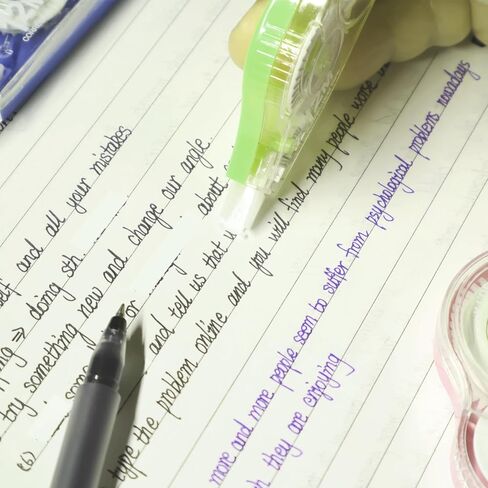 self and all your mistakes
doing sth.
try something new and change our angle.
(6) som for about
and tell us that
type the problem online and you will find many people worse
more and more people seem to suffer from psychological problems nowadays
they are enjoying